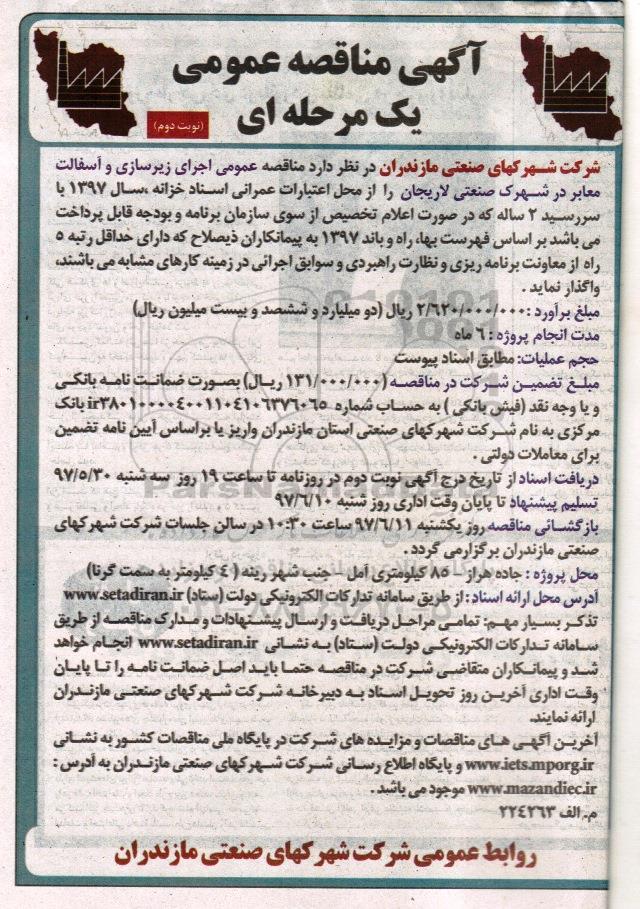 آگهی مناقصه عمومی
یک مرحله ای
(نوبت دوم)
شرکت شهرکهای صنعتی مازندران در نظر دارد مناقصه عمومی اجرای زیرسازی و آسفالت
معابر در شهرک صنعتی لاریجان را از محل اعتبارات عمرانی اسناد خزانه ،سال ۱۳۹۷ با
سررسید ۲ ساله که در صورت اعلام تخصیص از سوی سازمان برنامه و بودجه قابل پرداخت
می باشد بر اساس فهرست بها، راه و باند ۱۳۹۷ به پیمانکاران ذیصلاح که دارای حداقل رتبه ۵
راه از معاونت برنامه ریزی و نظارت راهبردی و سوابق اجرائی در زمینه کارهای مشابه می باشند،
واگذار نماید .
مبلغ برآورد :۲/۶۲۰/۰۰۰/۰۰۰ ریال (دو میلیارد و ششصد و بیست میلیون ریال)
مدت انجام پروژه : ۶ ماه
حجم عملیات: مطابق اسناد پیوست
مبلغ تضمین شرکت در مناقصه (۱۳۱/۰۰۰/۰۰۰ ریال) بصورت ضمانت نامه بانکی
و یا وجه نقد (فیش بانکی ) به حساب شماره ir۳۸۰۱۰۰۰۰۴۰۰۱۱۰۴۱۰۶۳۷۶۰۶۵ بانک
مرکزی به نام شرکت شهرکهای صنعتی استان مازندران واریز یا براساس آیین نامه تضمین
برای معاملات دولتی .
دریافت اسناد از تاریخ درج آگهی نوبت دوم در روزنامه تا ساعت ۱۹ روز سه شنبه ۹۷/۵/۳۰
تسلیم پیشنهاد تا پایان وقت اداری روز شنبه ۹۷/۶/۱۰
بازگشائی مناقصه روز یکشنبه ۹۷/۶/۱۱ ساعت ۱۰:۳۰ در سالن جلسات شرکت شهرکهای
صنعتی مازندران برگزار می گردد .
محل پروژه : جاده هراز - ۸۵ کیلومتری آمل - جنب شهر رینه ( ۴ کیلومتر به سمت گرنا)
آدرس محل ارائه اسناد : از طریق سامانه تدارکات الکترونیکی دولت (ستاد) www.setadiran.ir
تذکر بسیار مهم: تمامی مراحل دریافت و ارسال پیشنهادات و مدارک مناقصه از طریق
سامانه تدارکات الکترونیکی دولت (ستاد) به نشانی www.setadiran.ir انجام خواهد
شد و پیمانکاران متقاضی شرکت در مناقصه حتما باید اصل ضمانت نامه را تا پایان
وقت اداری آخرین روز تحویل اسناد به دبیرخانه شرکت شهرکهای صنعتی مازندران
ارائه نمایند.
آخرین آگهی های مناقصات و مزایده های شرکت در پایگاه ملی مناقصات کشور به نشانی
www.iets.mporg.ir و پایگاه اطلاع رسانی شرکت شهرکهای صنعتی مازندران به آدرس :
www.mazandiec.ir موجود می باشد .
م. الف ۲۲۴۲۶۳
روابط عمومی شرکت شهرکهای صنعتی مازندران